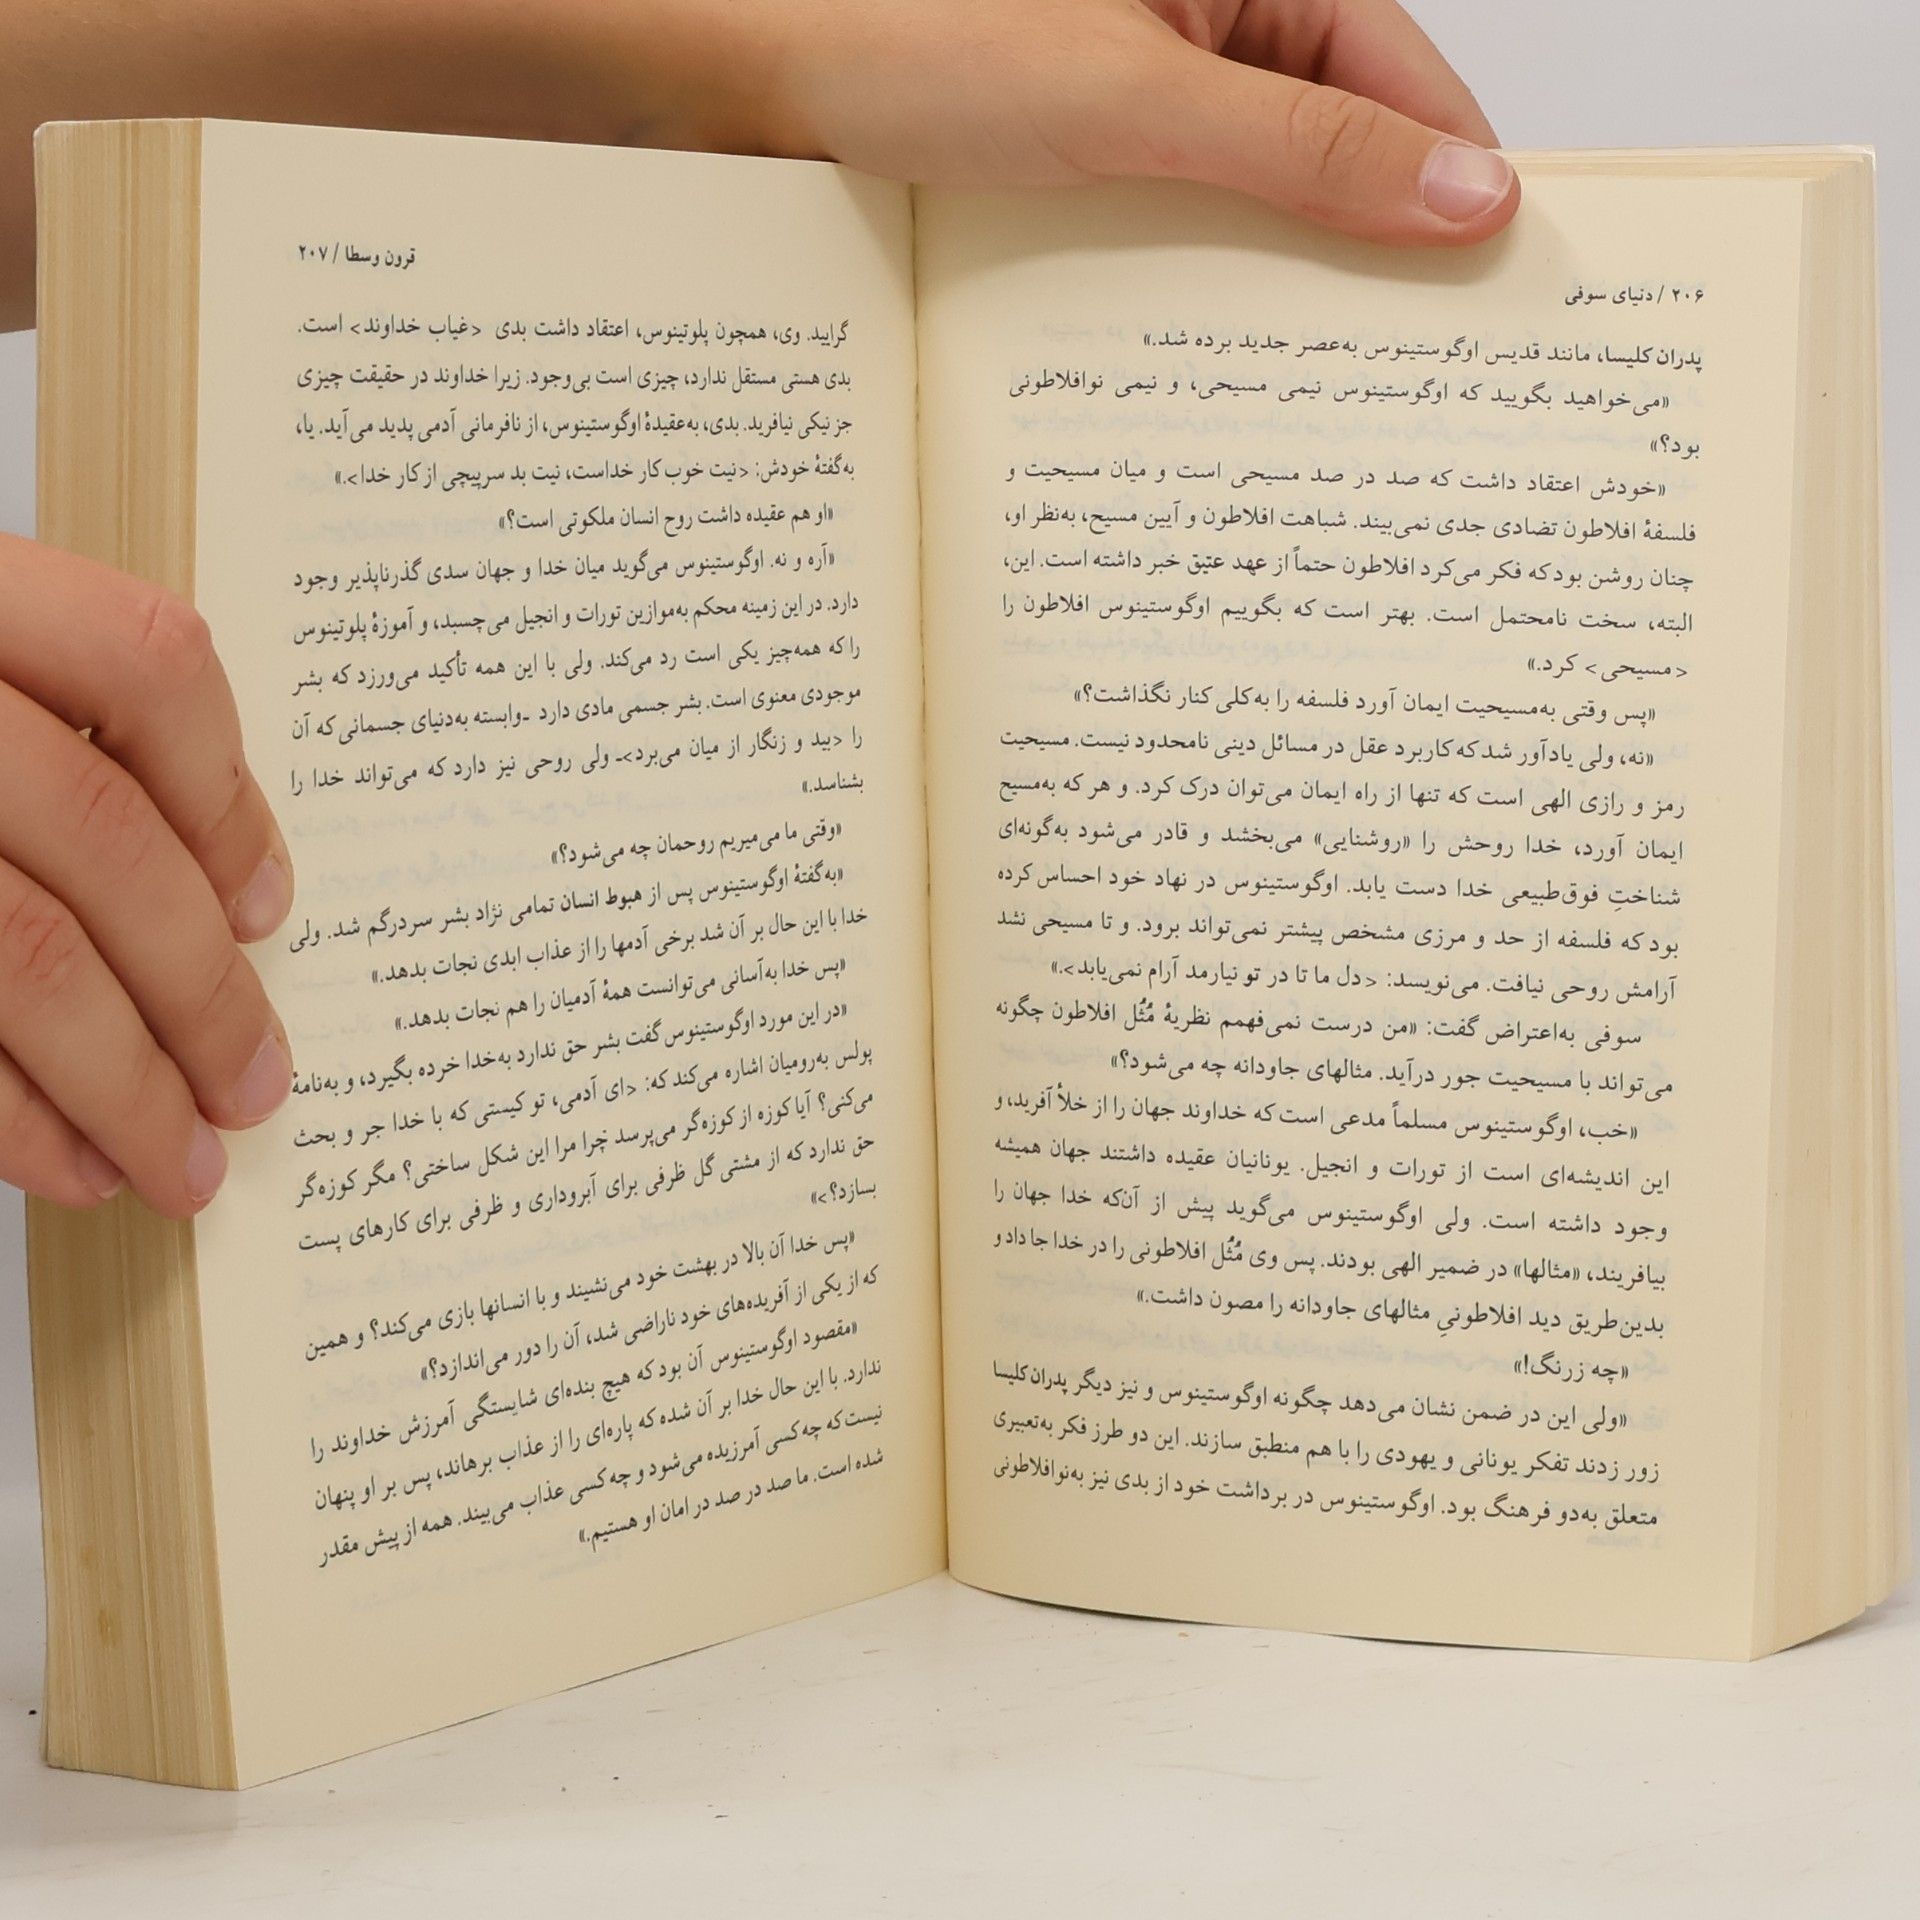 ۲۰۶ / دنیای سوفی
پدران کلیسا، مانند قدیس اوگوستینوس به‌عصر جدید برده شد.»
«می‌خواهید بگویید که اوگوستینوس نیمی مسیحی، و نیمی نوافلاطونی
بود؟»
«خودش اعتقاد داشت که صد در صد مسیحی است و میان مسیحیت و
فلسفهٔ افلاطون تضادی جدی نمی‌بیند. شباهت افلاطون و آیین مسیح، به‌نظر او،
چنان روشن بود که فکر می‌کرد افلاطون حتماً از عهد عتیق خبر داشته است. این،
البته، سخت نامحتمل است. بهتر است که بگوییم اوگوستینوس افلاطون را
<مسیحی> کرد.»
«پس وقتی به‌مسیحیت ایمان آورد فلسفه را به‌کلی کنار نگذاشت؟»
«نه، ولی یادآور شد که کاربرد عقل در مسائل دینی نامحدود نیست. مسیحیت
رمز و رازی الهی است که تنها از راه ایمان می‌توان درک کرد. و هر که به‌مسیح
ایمان آورد، خدا روحش را «روشنایی» می‌بخشد و قادر می‌شود به‌گونه‌ای
شناختِ فوق‌طبیعی خدا دست یابد. اوگوستینوس در نهاد خود احساس کرده
بود که فلسفه از حد و مرزی مشخص پیشتر نمی‌تواند برود. و تا مسیحی نشد
آرامش روحی نیافت. می‌نویسد: <دل ما تا در تو نیارمد آرام نمی‌یابد>.»
سوفی به‌اعتراض گفت: «من درست نمی‌فهمم نظریهٔ مُثُل افلاطون چگونه
می‌تواند با مسیحیت جور درآید. مثالهای جاودانه چه می‌شود؟»
«خب، اوگوستینوس مسلماً مدعی است که خداوند جهان را از خلأ آفرید، و
این اندیشه‌ای است از تورات و انجیل. یونانیان عقیده داشتند جهان همیشه
وجود داشته است. ولی اوگوستینوس می‌گوید پیش از آن‌که خدا جهان را
بیافریند، «مثالها» در ضمیر الهی بودند. پس وی مُثُل افلاطونی را در خدا جا داد و
بدین‌طریق دید افلاطونیِ مثالهای جاودانه را مصون داشت.»
«چه زرنگ!»
«ولی این در ضمن نشان می‌دهد چگونه اوگوستینوس و نیز دیگر پدران کلیسا
زور زدند تفکر یونانی و یهودی را با هم منطبق سازند. این دو طرز فکر به‌تعبیری
متعلق به‌دو فرهنگ بود. اوگوستینوس در برداشت خود از بدی نیز به‌نوافلاطونی
قرون وسطا / ۲۰۷
گرایید. وی، همچون پلوتینوس، اعتقاد داشت بدی <غیاب خداوند> است.
بدی هستی مستقل ندارد، چیزی است بی‌وجود. زیرا خداوند در حقیقت چیزی
جز نیکی نیافرید. بدی، به‌عقیدهٔ اوگوستینوس، از نافرمانی آدمی پدید می‌آید. یا،
به‌گفتهٔ خودش: <نیت خوب کار خداست، نیت بد سرپیچی از کار خدا>.»
«او هم عقیده داشت روح انسان ملکوتی است؟»
«آره و نه. اوگوستینوس می‌گوید میان خدا و جهان سدی گذرناپذیر وجود
دارد. در این زمینه محکم به‌موازین تورات و انجیل می‌چسبد، و آموزهٔ پلوتینوس
را که همه‌چیز یکی است رد می‌کند. ولی با این همه تأکید می‌ورزد که بشر
موجودی معنوی است. بشر جسمی مادی دارد -وابسته به‌دنیای جسمانی که آن
را <بید و زنگار از میان می‌برد>- ولی روحی نیز دارد که می‌تواند خدا را
بشناسد.»
«وقتی ما می‌میریم روحمان چه می‌شود؟»
«به‌گفتهٔ اوگوستینوس پس از هبوط انسان تمامی نژاد بشر سردرگم شد. ولی
خدا با این حال بر آن شد برخی آدمها را از عذاب ابدی نجات بدهد.»
«پس خدا به‌آسانی می‌توانست همهٔ آدمیان را هم نجات بدهد.»
«در این مورد اوگوستینوس گفت بشر حق ندارد به‌خدا خرده بگیرد، و به‌نامهٔ
پولس به‌رومیان اشاره می‌کند که: <ای آدمی، تو کیستی که با خدا جر و بحث
می‌کنی؟ آیا کوزه از کوزه‌گر می‌پرسد چرا مرا این شکل ساختی؟ مگر کوزه‌گر
حق ندارد که از مشتی گل ظرفی برای آبروداری و ظرفی برای کارهای پست
بسازد؟>»
«پس خدا آن بالا در بهشت خود می‌نشیند و با انسانها بازی می‌کند؟ و همین
که از یکی از آفریده‌های خود ناراضی شد، آن را دور می‌اندازد؟»
«مقصود اوگوستینوس آن بود که هیچ بنده‌ای شایستگی آمرزش خداوند را
ندارد. با این حال خدا بر آن شده که پاره‌ای را از عذاب برهاند، پس بر او پنهان
نیست که چه کسی آمرزیده می‌شود و چه کسی عذاب می‌بیند. همه از پیش مقدر
شده است. ما صد در صد در امان او هستیم.»